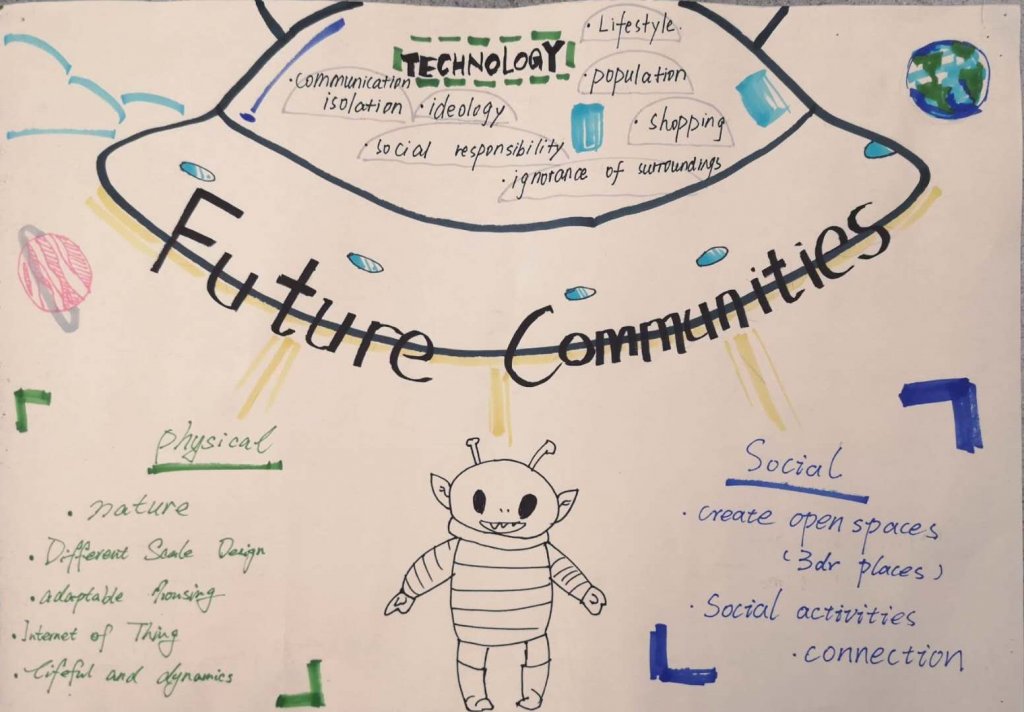 · Lifestyle
TECHNOLOGY
· population
· communication
isolation
· ideology
· shopping
· social responsibility
· ignorance of surroundings
Future Communities
physical
· nature
· Different Scale Design
· adaptable housing
· Internet of Thing
· lifeful and dynamics
Social
· create open spaces
(3dr places)
· Social activities
· connection